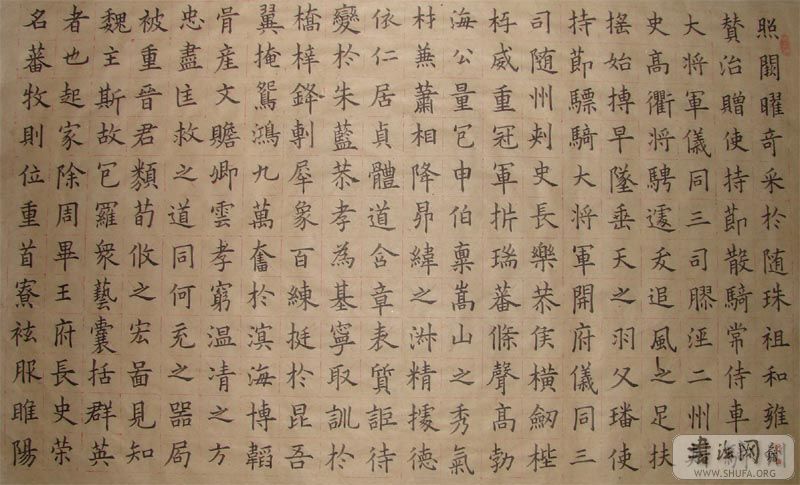 照闕曜奇采於随珠祖和雍
賛治贈使持節散騎常侍車
大将軍儀同三司膠涇二州
史高衢将騁遽夭追風之足扶
搖始摶早墜垂天之羽父璠使
持節驃騎大将軍開府儀同三
司随州刾史長樂恭侯横劒梐
枑威重冠軍析瑞蕃條聲高勃
海公量包申伯稟嵩山之秀氣
材兼蕭相降昴緯之淋精據德
依仁居貞體道含章表質詎待
變於朱藍恭孝為基寧取訓於
橋梓鋒剸犀象百練挺於昆吾
翼掩鴛鴻九萬奮於溟海博韜
骨産文贍卿雲孝窮温凊之方
忠盡匡救之道同何充之器局
被重晉君類荀攸之宏啚見知
魏主斯故包羅衆藝囊括群英
者也起家除周畢王府長史榮
名蕃牧則位重首寮袨服睢陽
書法网
WWW.SHUFA.ORG